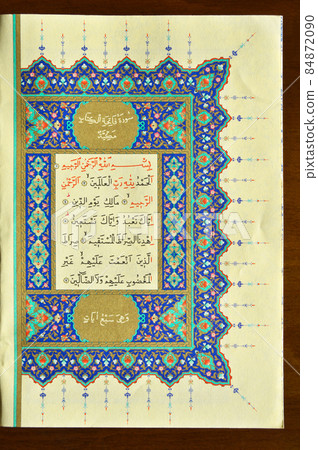 سورة فاتحة الكتاب
مكية
بِسْمِ اللهِ الرَّحْمٰنِ الرَّحِيمِ
اَلْحَمْدُ لِلهِ رَبِّ الْعَالَمِينَ ۞ اَلرَّحْمٰنِ
الرَّحِيمِ ۞ مَالِكِ يَوْمِ الدِّينِ ۞
اِيَّاكَ نَعْبُدُ وَاِيَّاكَ نَسْتَعِينُ ۞
اِهْدِنَا الصِّرَاطَ الْمُسْتَقِيمَ ۞ صِرَاطَ
الَّذِينَ اَنْعَمْتَ عَلَيْهِمْ غَيْرِ
الْمَغْضُوبِ عَلَيْهِمْ وَلَا الضَّالِّينَ ۞
وهي سبع آيات
PIXTA
pixta.jp - 84872090